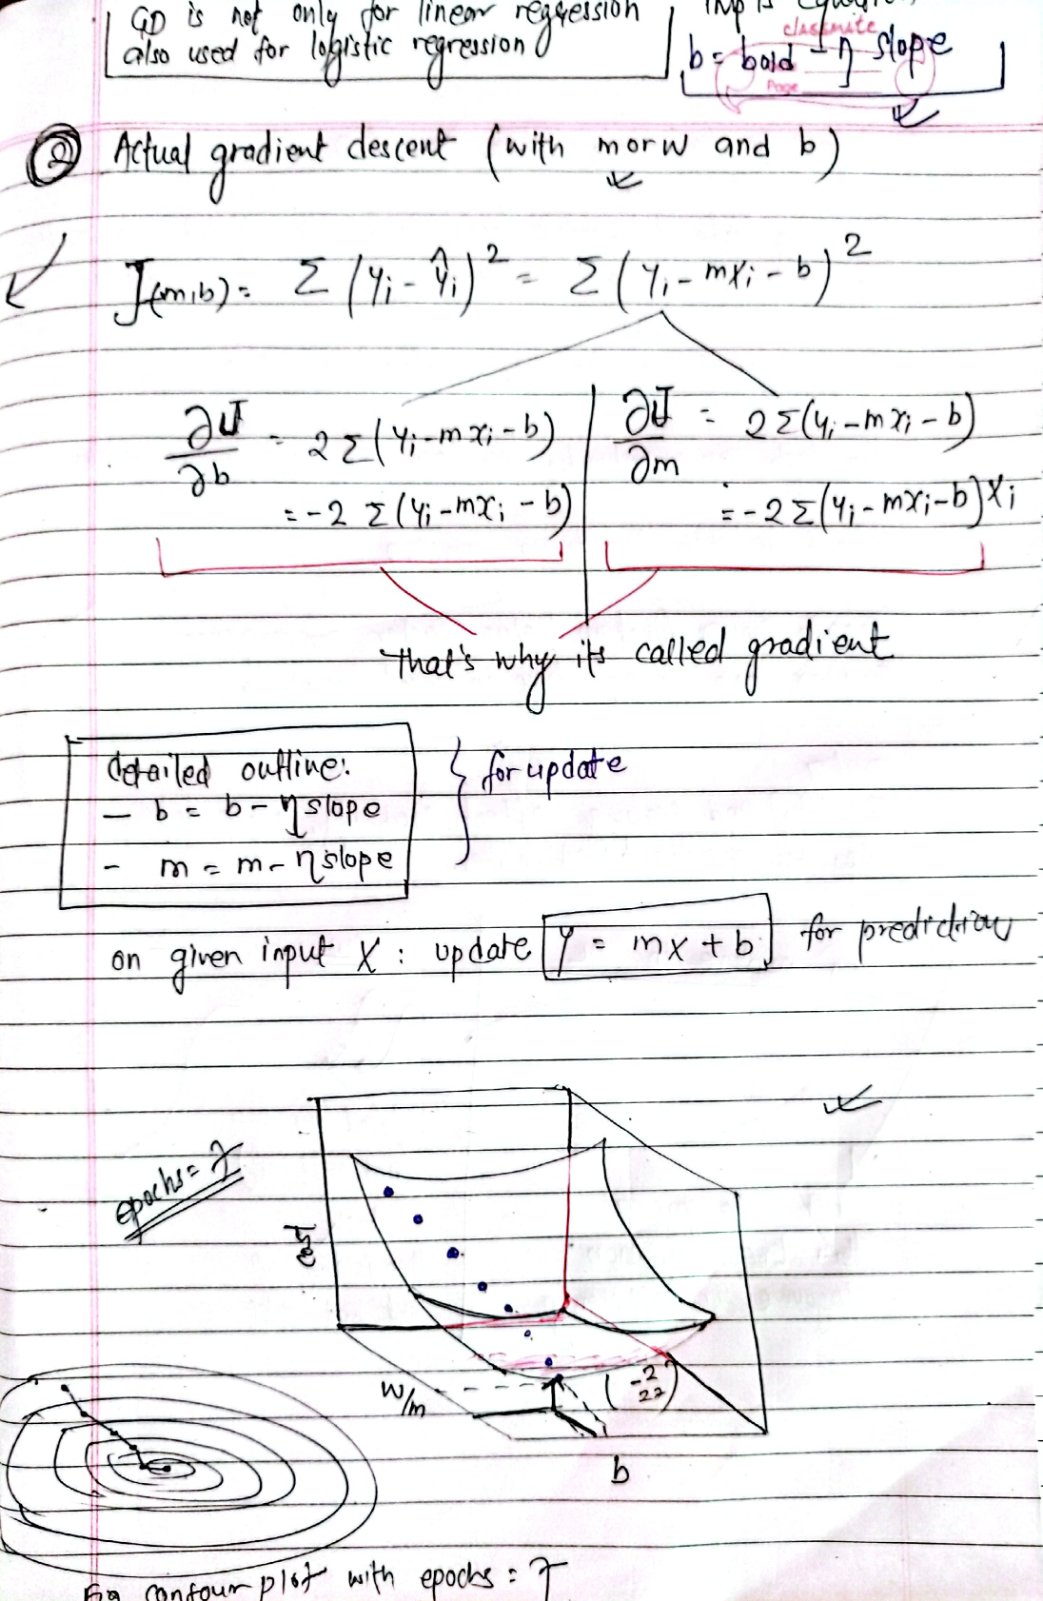 GD is not only for linear regression
also used for logistic regression
Imp is equation
classmate
b = bold - η slope
Page
② Actual gradient descent (with m or w and b)
J(m,b) = Σ (yi - ŷi)² = Σ (yi - mxi - b)²
∂J/∂b = 2 Σ (yi - mxi - b)
= -2 Σ (yi - mxi - b)
∂J/∂m = 2 Σ (yi - mxi - b)
= -2 Σ (yi - mxi - b) xi
That's why its called gradient
detailed outline:
- b = b - η slope
- m = m - η slope
} for update
on given input X : update y = mx + b for prediction
epochs = 7
cost
w/m
(-2
22)
b
Fig contour plot with epochs = 7